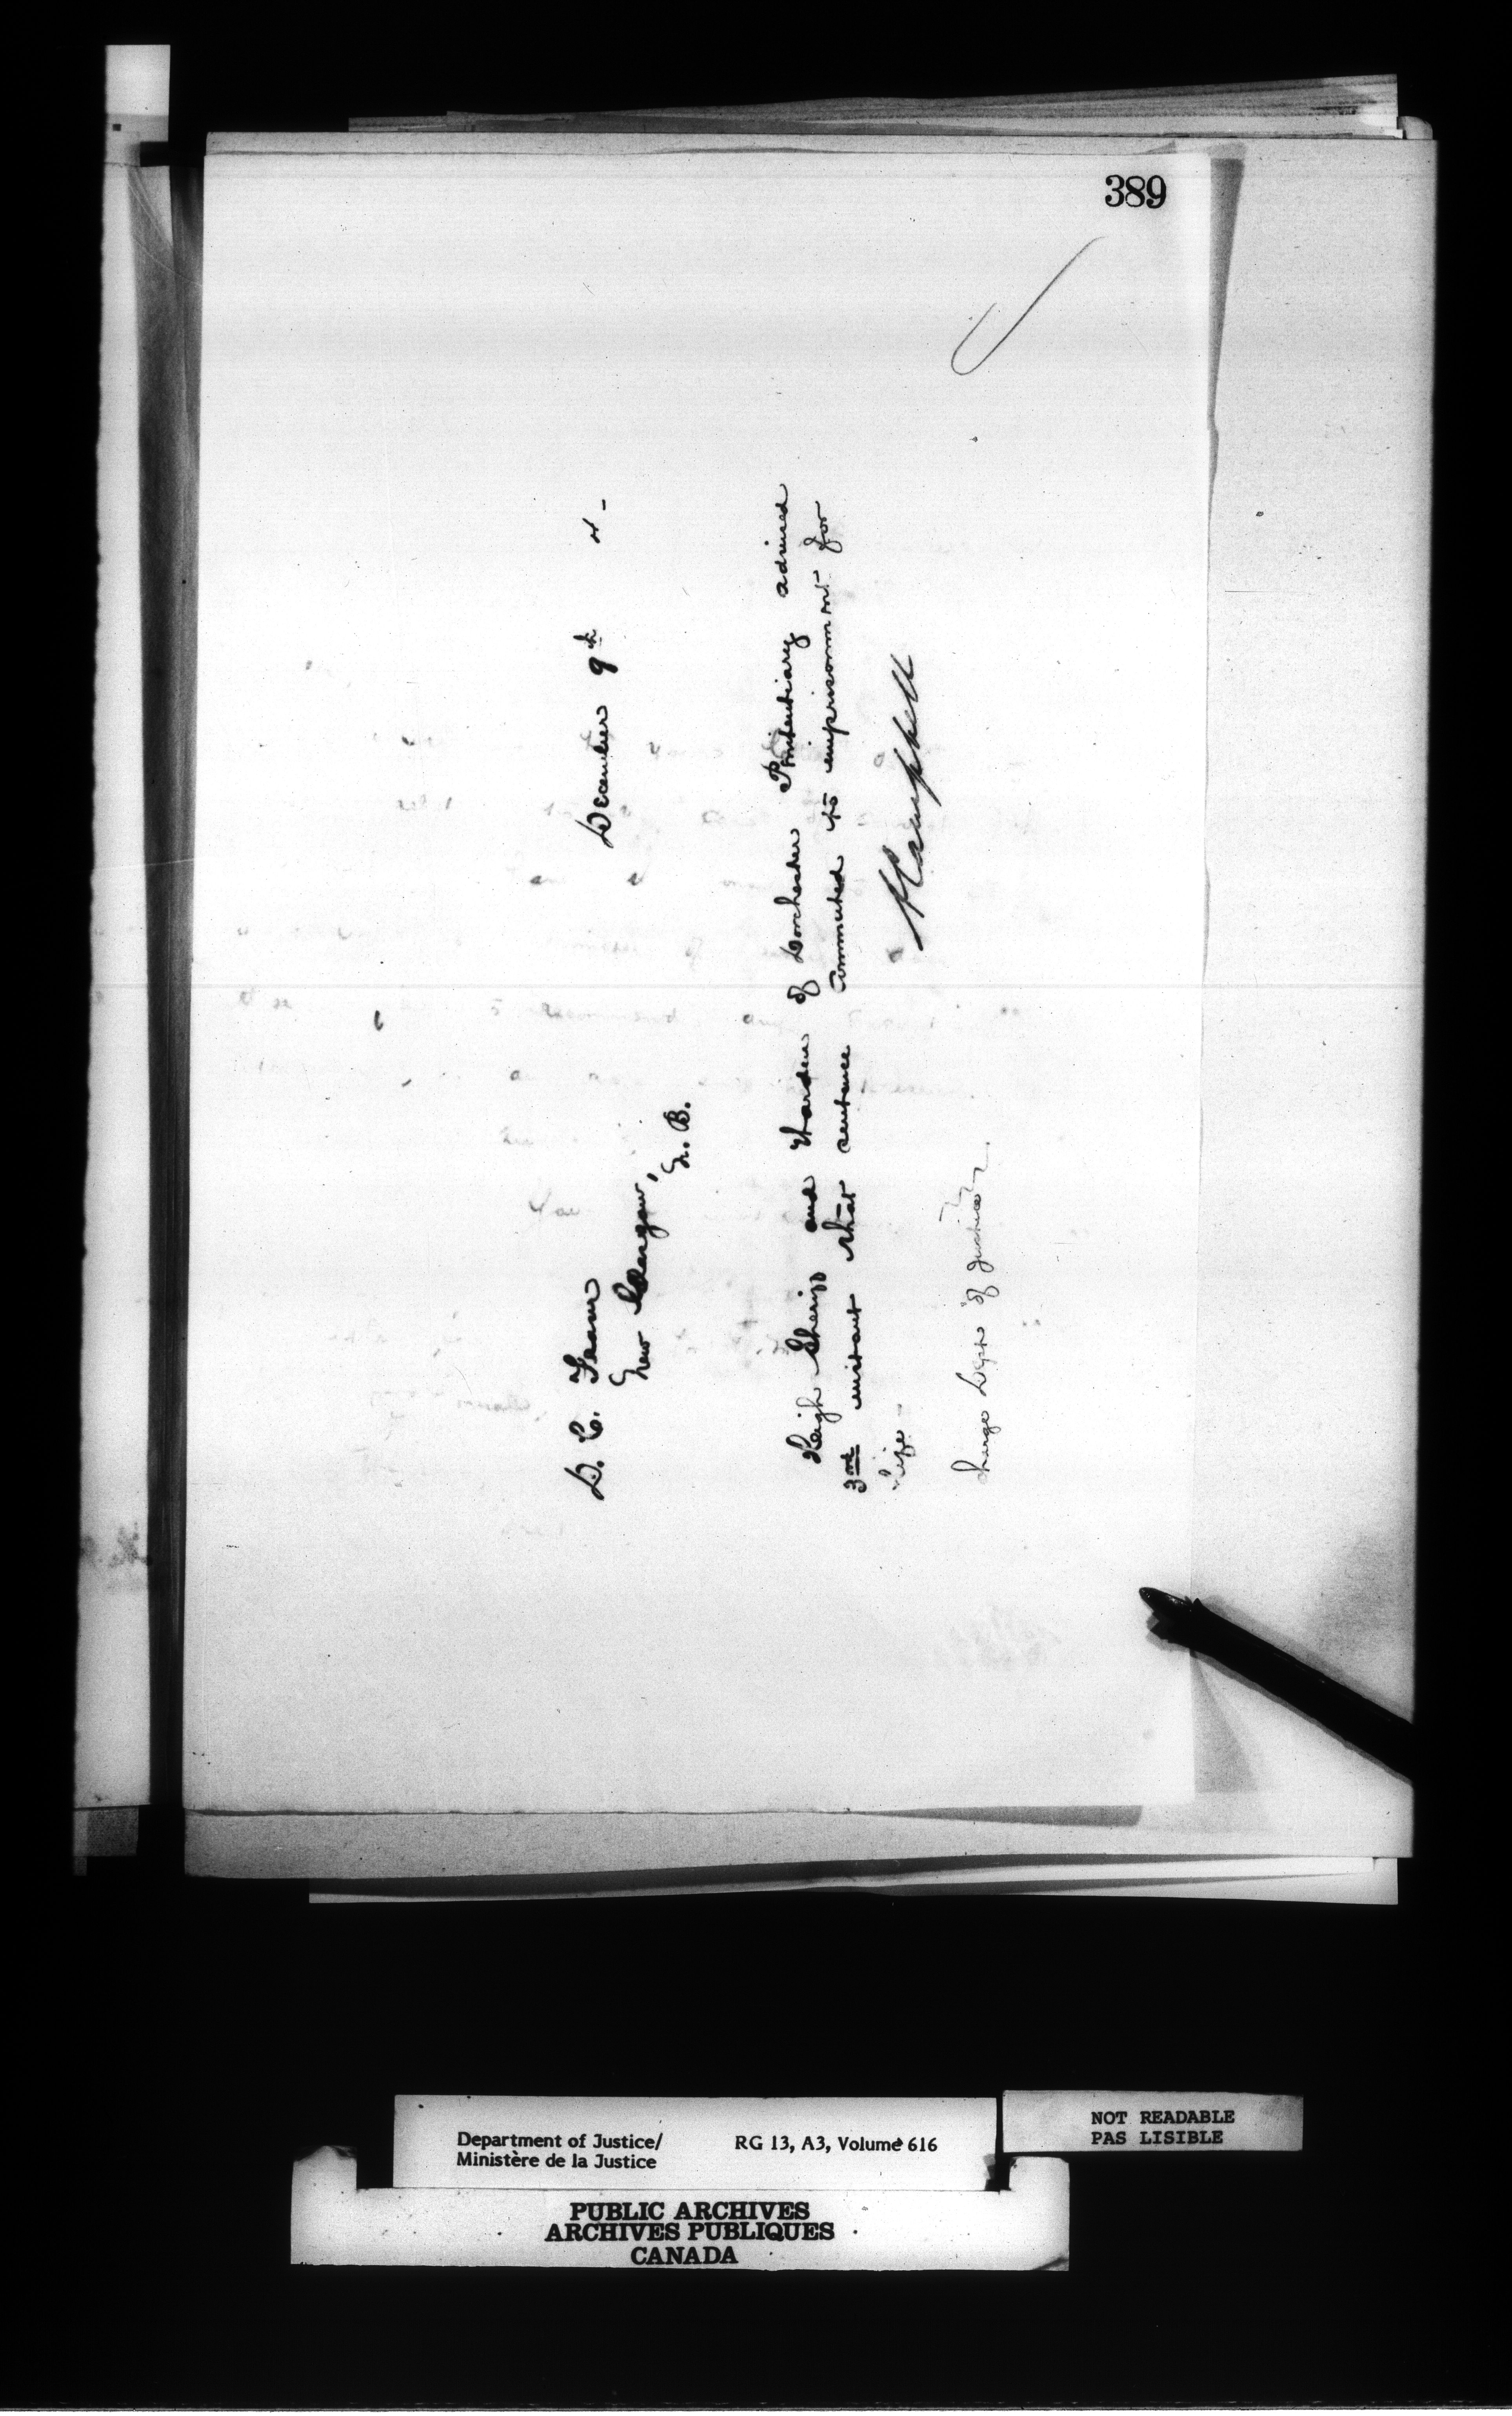 389
December 9th 4-
D. C. Fraser
New Glasgow,
N. B.
High Sheriff and Warden of Dorchester Penitentiary advised
3rd instant that sentence commuted to imprisonmnt for
life
ACampbell
charge Dept of Justice
Department of Justice/ RG 13, A3, Volume 616
Ministère de la Justice
NOT READABLE
PAS LISIBLE
PUBLIC ARCHIVES
ARCHIVES PUBLIQUES
CANADA